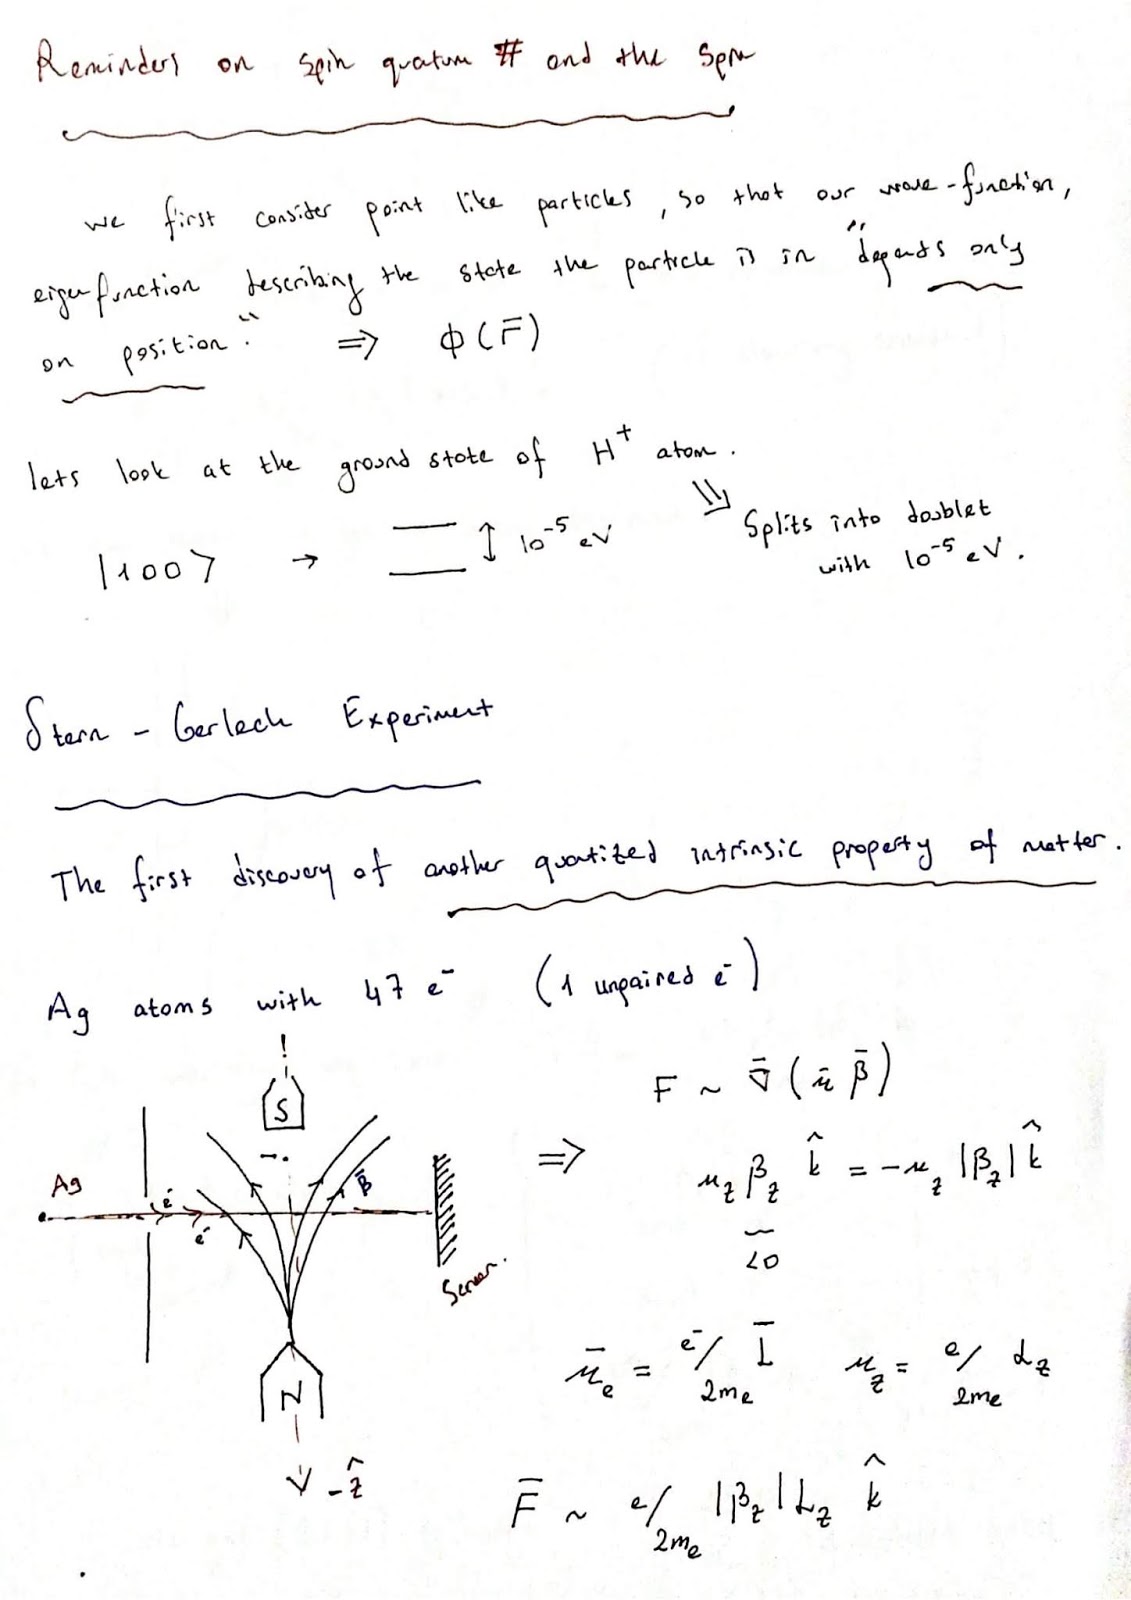 Reminders on spin quatum # and the Spin
we first consider point like particles, so that our wave-function,
eigenfunction describing the state the particle is in "depends only
on position." ⇒ Φ(r̄)
lets look at the ground state of H⁺ atom.
|100⟩ → ↕ 10⁻⁵ eV
Splits into doublet
with 10⁻⁵ eV.
Stern - Gerlach Experiment
The first discovery of another quantized intrinsic property of matter.
Ag atoms with 47 e⁻ (1 unpaired e⁻)
S
Ag
e⁻
e⁻
β̄
Screen.
N
-ẑ
F ~ ∇̄(μ̄ β̄)
⇒ μ_z β_z k̂ = -μ_z |β_z| k̂
<0
μ̄_e = e⁻/2m_e L̄ μ_z = e/2m_e L_z
F̄ ~ e/2m_e |β_z| L_z k̂